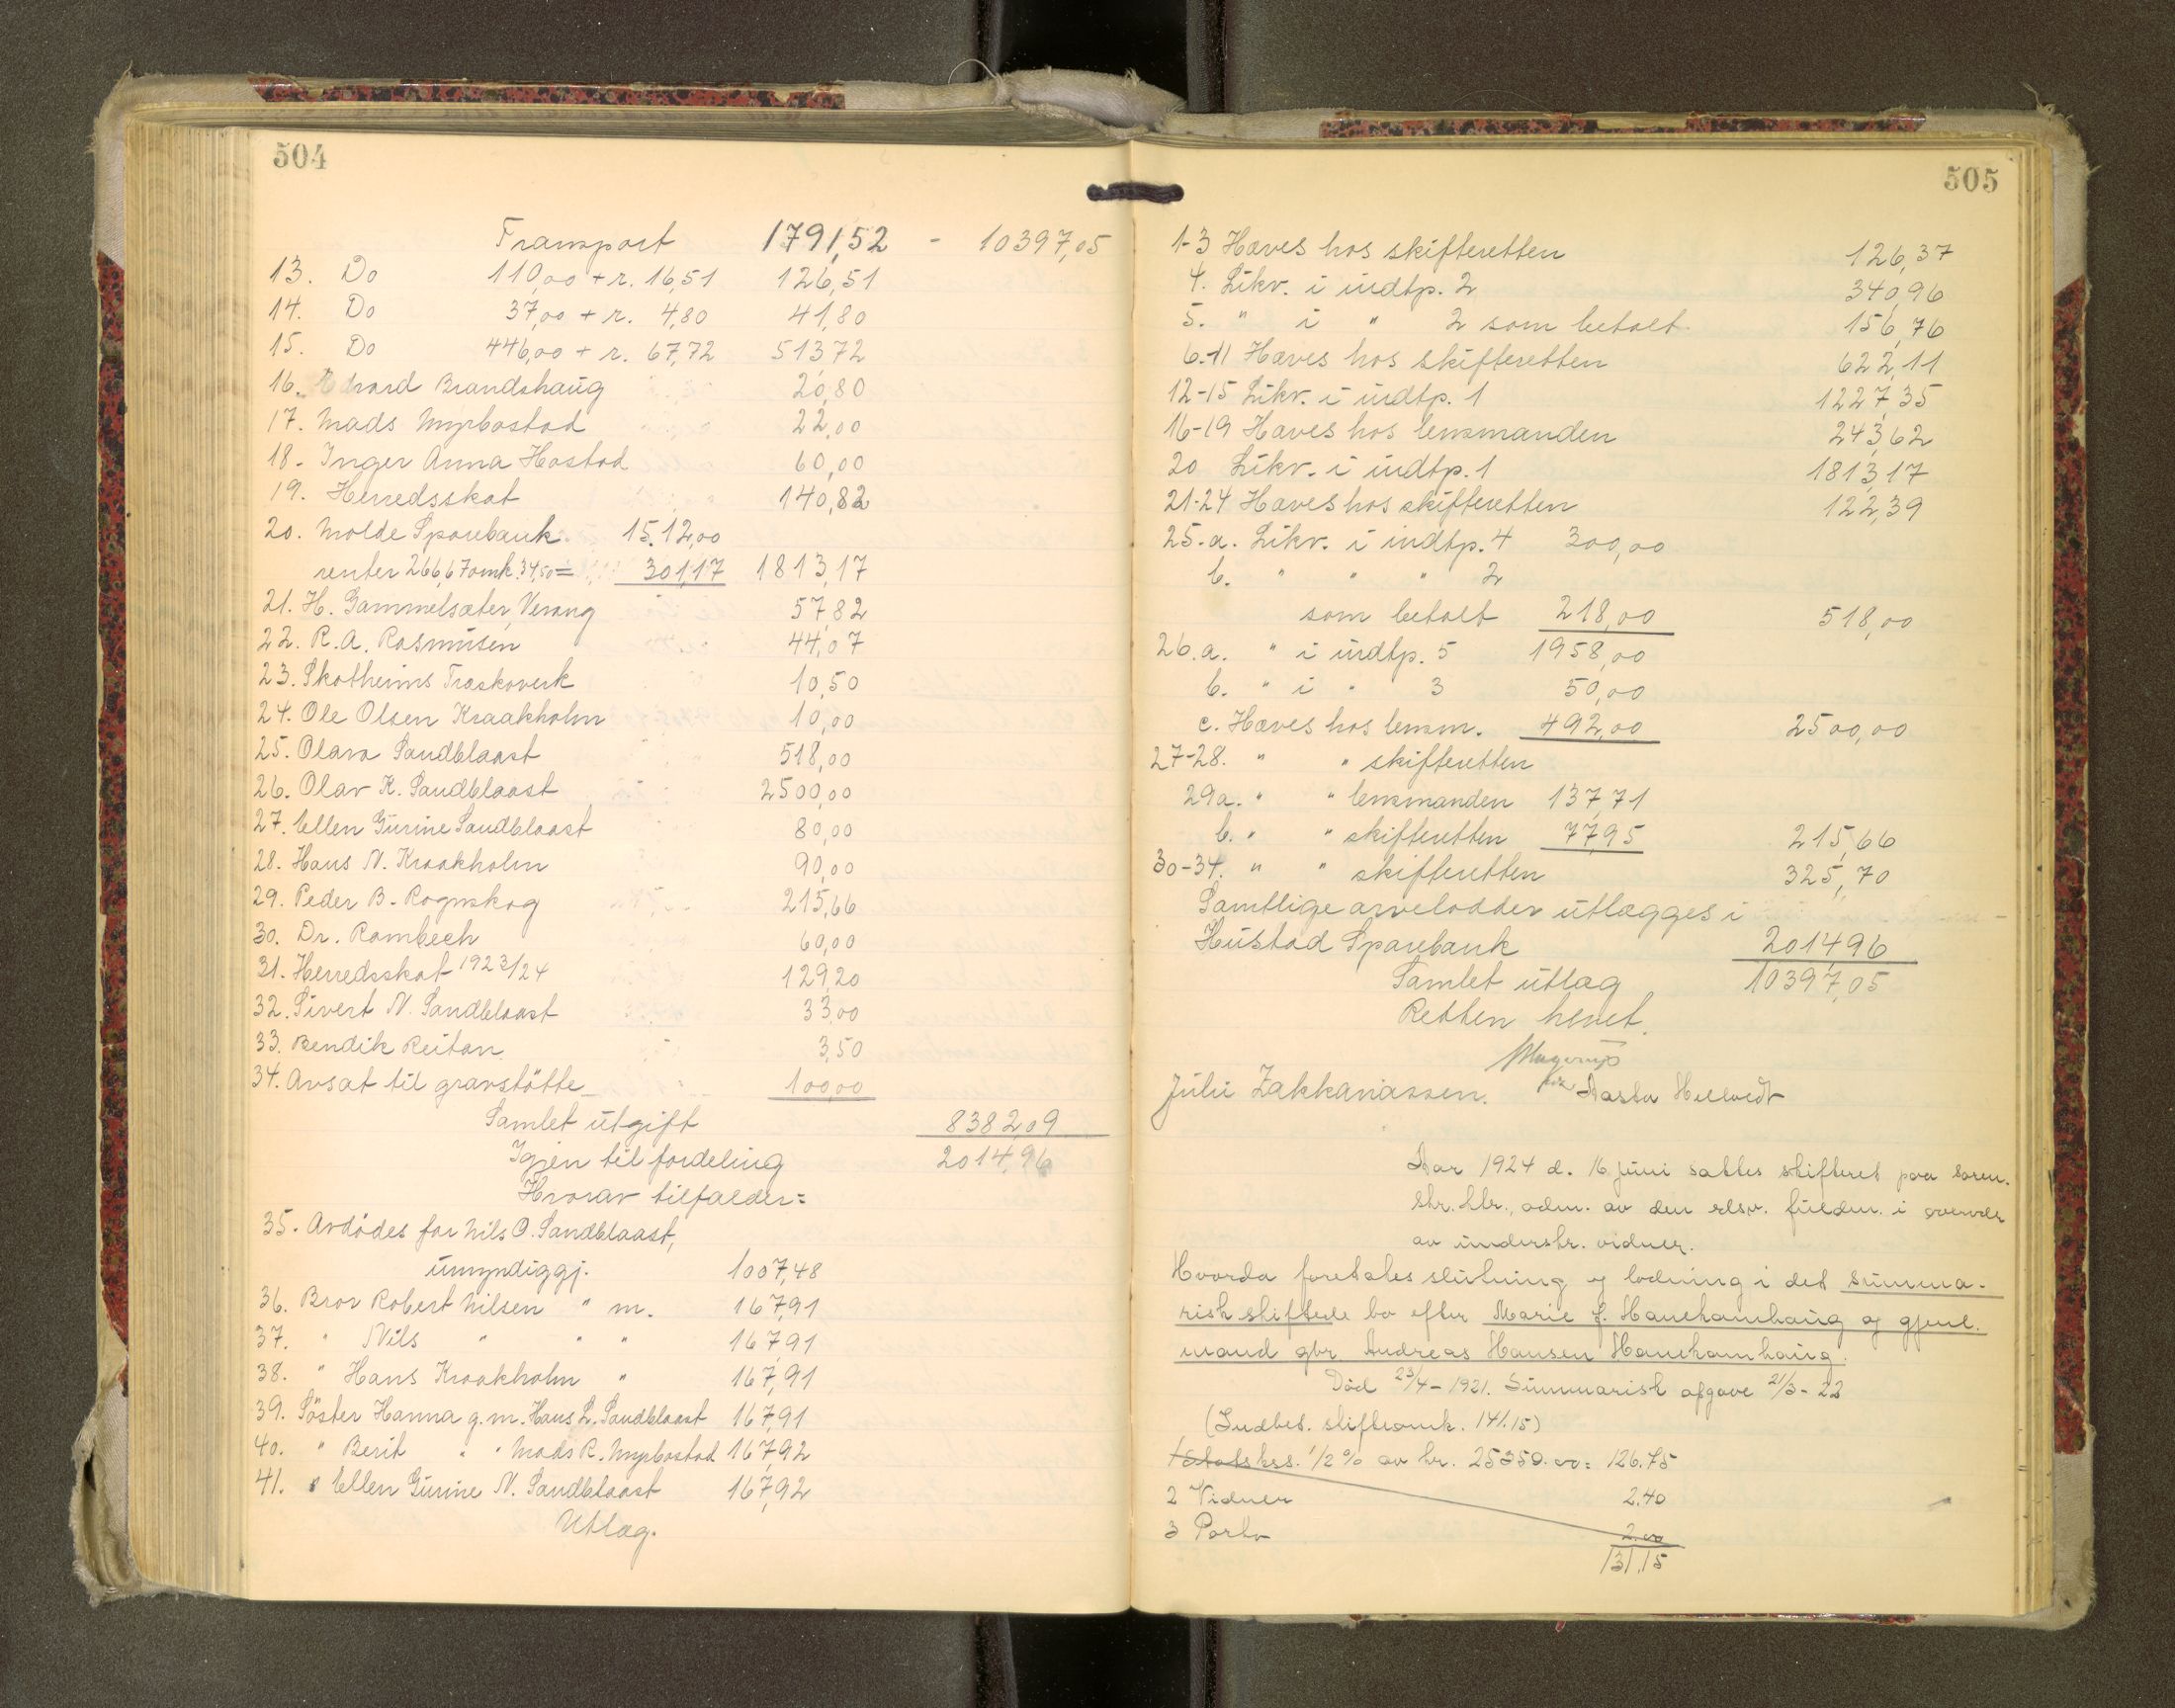 504
Transport 1791,52 - 10397,05
13. Do 110,00 + r. 16,51 126,51
14. Do 37,00 + r. 4,80 41,80
15. Do 446,00 + r. 67,72 513,72
16. Edvard Brandshaug 20,80
17. Mads Myrbostad 22,00
18. Inger Anna Hostad 60,00
19. Herredsskat 140,82
20. Molde Sparebank 15.12,00
renter 266,67 omk. 34,50 = 301,17 1813,17
21. H. Gammelsæter, Verang 57,82
22. R. A. Rasmusen 44,07
23. Skotheims Træskoverk 10,50
24. Ole Olsen Kraakholm 10,00
25. Olava Sandblaast 518,00
26. Olav K. Sandblaast 2500,00
27. Ellen Gurine Sandblaast 80,00
28. Hans N. Kraakholm 90,00
29. Peder B. Rognskog 215,66
30. Dr. Rambech 60,00
31. Herredsskat 1923/24 129,20
32. Sivert N. Sandblaast 33,00
33. Bendik Reitan 3,50
34. Avsat til gravstötte 100,00
Samlet utgift 8382,09
Igjen til fordeling 2014,96
Hvorav tilfalder:
35. Avdödes far Nils O. Sandblaast,
umyndiggj. 1007,48
36. Bror Robert Nilsen " m. 167,91
37. " Nils " " " 167,91
38. " Hans Kraakholm " 167,91
39. Söster Hanna g.m. Hans L. Sandblaast 167,91
40. " Berit " " Mads R. Myrbostad 167,92
41. " Ellen Gurine N. Sandblaast 167,92
Utlæg.
505
1-3 Hæves hos skifteretten 126,37
4. Likv. i indtp. 2 340,96
5. " i " 2 som betalt 156,76
6.-11 Hæves hos skifteretten 622,11
12-15 Likv. i indtp. 1 1227,35
16-19 Hæves hos lensmanden 243,62
20 Likv. i indtp. 1 1813,17
21-24 Hæves hos skifteretten 122,39
25. a. Likv. i indtp. 4 300,00
b. " " " 2
som betalt 218,00 518,00
26. a. " i indtp. 5 1958,00
b. " i " 3 50,00
c. Hæves hos lensm. 492,00 2500,00
27-28. " " skifteretten
29a. " " lensmanden 137,71
b. " " skifteretten 77,95 215,66
30-34. " " skifteretten 325,70
Samtlige arvelodder utlægges i
Hustad Sparebank 2014,96
Samlet utlæg 10397,05
Retten hevet.
Juli Zakkariassen. Aasta
Aar 1924 d. 16 juni sattes skifteret paa soren-
skr. ktr., adm. av den edsv. fuldm. i overvær
av underskr. vidner.
Hvorda foretales slutning og lodning i det summa-
risk skiftede bo efter Marie f. Hanehamhaug og gjenl.
mand gbr. Andreas Hansen Hanehamhaug.
Död 23/4 - 1921. Summarisk opgave 21/3 - 22
(Indbet. skifteomk. 141.15)
1 Statsks. 1/2 % av kr. 25350.00 = 126.75
2 Vidner 2.40
3 Porto 2.00
131.15